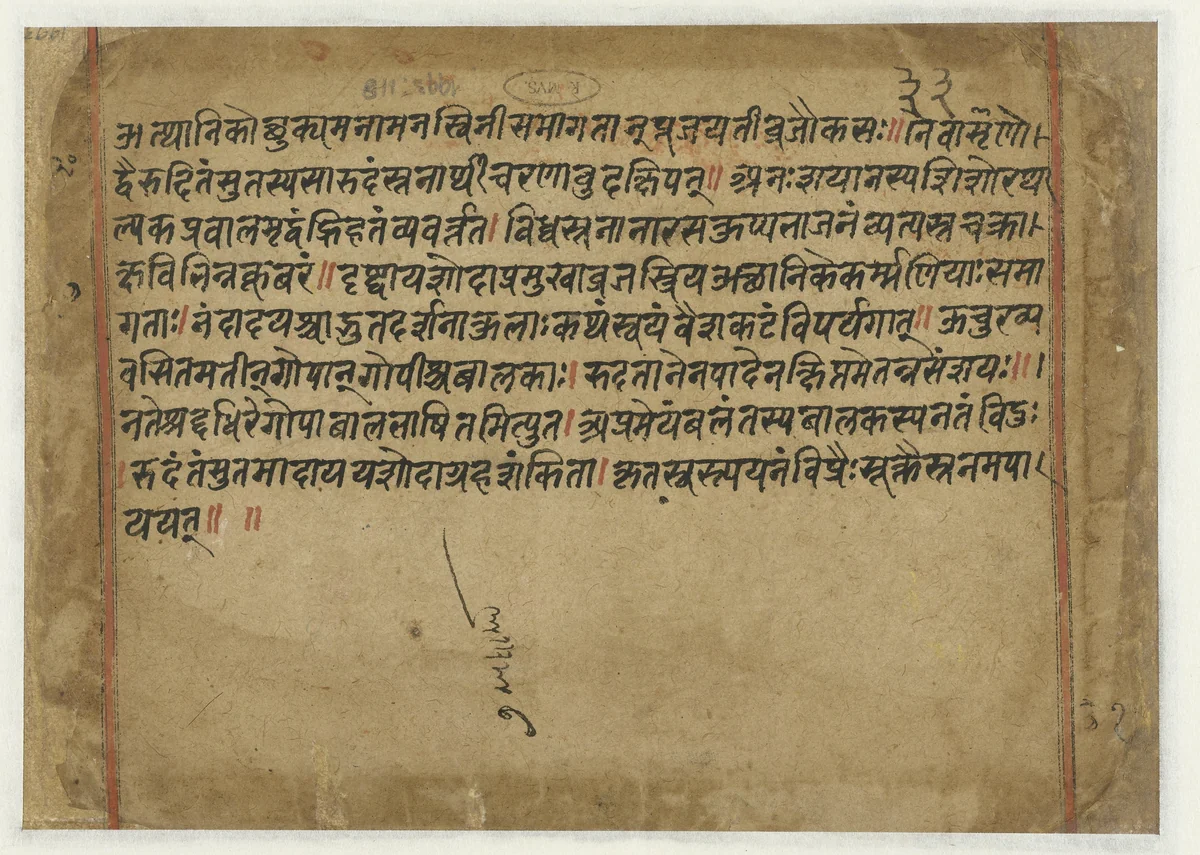 ३३
अत्थानिकोत्छुक्यमनामनस्विनीसमागतान्पूजयतीव्रजौकसः॥नैवाशृणो।
द्वैरुदितंसुतस्यसारुदंस्तनार्थीचरणावुदक्षिपत्॥अधःशयानस्यशिशोरथा
ल्पकप्रवालमृद्वंह्रिहतंव्यवर्त्तत।विध्वस्तनानारसकुप्यभाजनंव्यत्यस्तचक्रा।
क्षविभिन्नकूबरं॥दृष्ट्वायशोदाप्रमुखाव्रजस्त्रियअछानिकेकर्म्मणियाःसमा
गताः।नंदादयश्चाद्भुतदर्शनाकुलाःकथंस्वयंवैशकटंविपर्यगात्॥ऊचुरव्य
वसितमतीन्गोपान्गोपीश्चबालकाः।रुदतानेनपादेनक्षिप्तमेतन्नसंशयः॥।
नतेश्रद्दधिरेगोपाबालभाषितमित्युत।अप्रमेयंबलंतस्यबालकस्यनतंविदुः
।रुदंतंसुतमादाययशोदाग्रहशंकिता।कृतस्वस्त्ययनंविप्रैःसूक्तैस्तनमपा।
ययत्॥ ॥